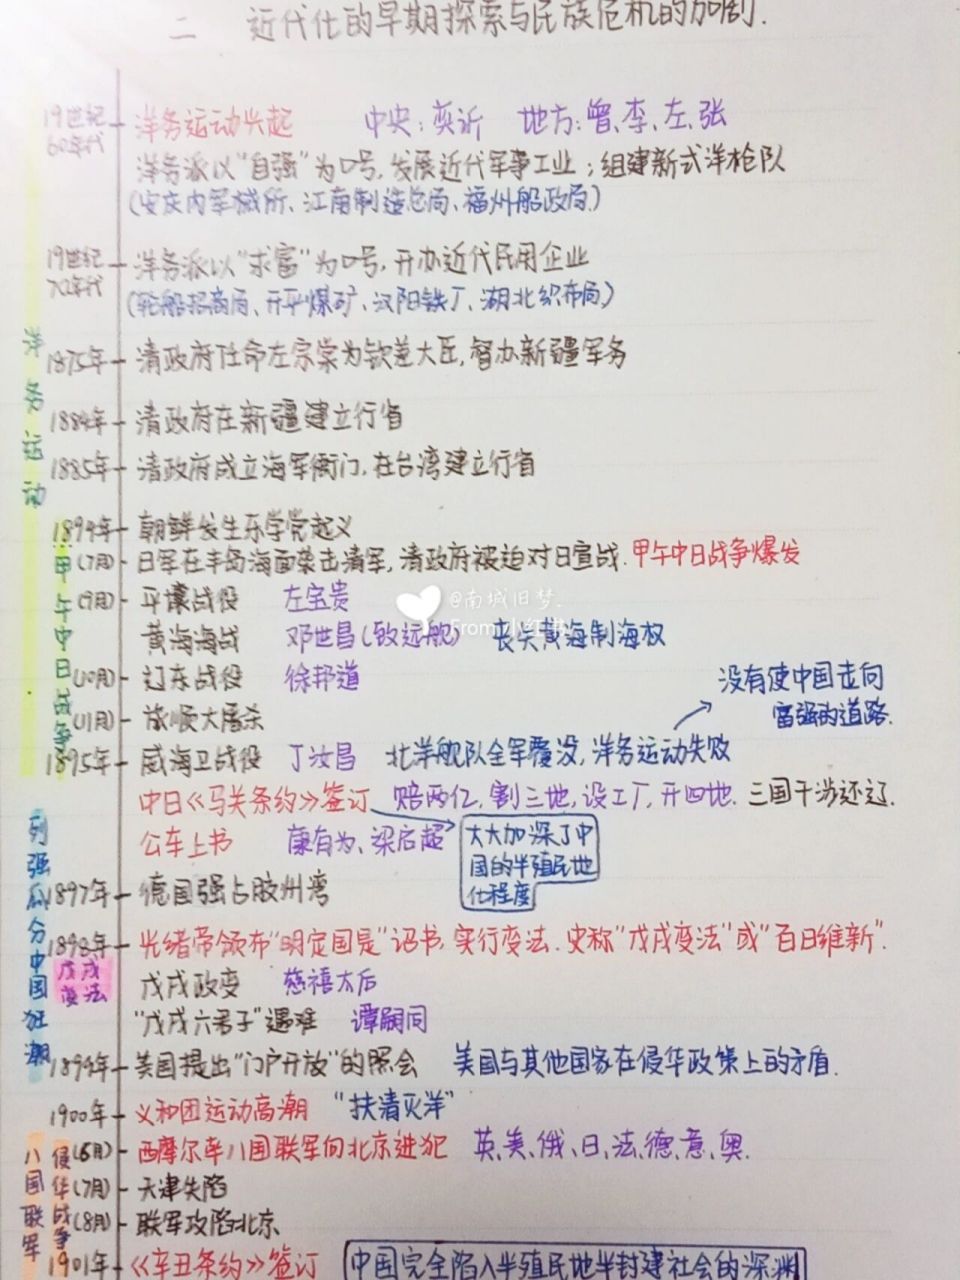 二 近代化的早期探索与民族危机的加剧.
19世纪60年代 洋务运动兴起 中央:奕䜣 地方:曾、李、左、张
洋务派以"自强"为口号,发展近代军事工业;组建新式洋枪队
(安庆内军械所、江南制造总局、福州船政局)
19世纪70年代 洋务派以"求富"为口号,开办近代民用企业
(轮船招商局、开平煤矿、汉阳铁厂、湖北织布局)
洋务运动
1875年 清政府任命左宗棠为钦差大臣,督办新疆军务
1884年 清政府在新疆建立行省
1885年 清政府成立海军衙门,在台湾建立行省
甲午中日战争
1894年 朝鲜发生东学党起义
(7月) 日军在丰岛海面袭击清军,清政府被迫对日宣战.甲午中日战争爆发
(9月) 平壤战役 左宝贵
@南城旧梦.
From 小红书
黄海海战 邓世昌(致远舰) 丧失黄海制海权
(10月) 辽东战役 徐邦道
没有使中国走向
富强的道路.
(11月) 旅顺大屠杀
1895年 威海卫战役 丁汝昌 北洋舰队全军覆没,洋务运动失败
中日《马关条约》签订 赔两亿,割三地,设工厂,开四地.三国干涉还辽.
公车上书 康有为、梁启超
大大加深了中
国的半殖民地
化程度
列强瓜分中国狂潮
1897年 德国强占胶州湾
1898年 光绪帝颁布"明定国是"诏书,实行变法.史称"戊戌变法"或"百日维新".
戊戌变法
戊戌政变 慈禧太后
"戊戌六君子"遇难 谭嗣同
1899年 美国提出"门户开放"的照会 美国与其他国家在侵华政策上的矛盾.
1900年 义和团运动高潮 "扶清灭洋"
八国联军侵华战争
(6月) 西摩尔率八国联军向北京进犯 英、美、俄、日、法、德、意、奥.
(7月) 天津失陷
(8月) 联军攻陷北京
1901年 《辛丑条约》签订 中国完全陷入半殖民地半封建社会的深渊